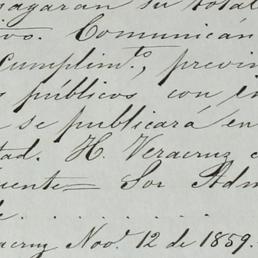 pagarán su total
vos. Comunicán
Cumplim.to, previn
s públicos con in
se publicará en
tad. H. Veracruz
uente= Sor Adm
acruz Nov.e 12 de 1859.